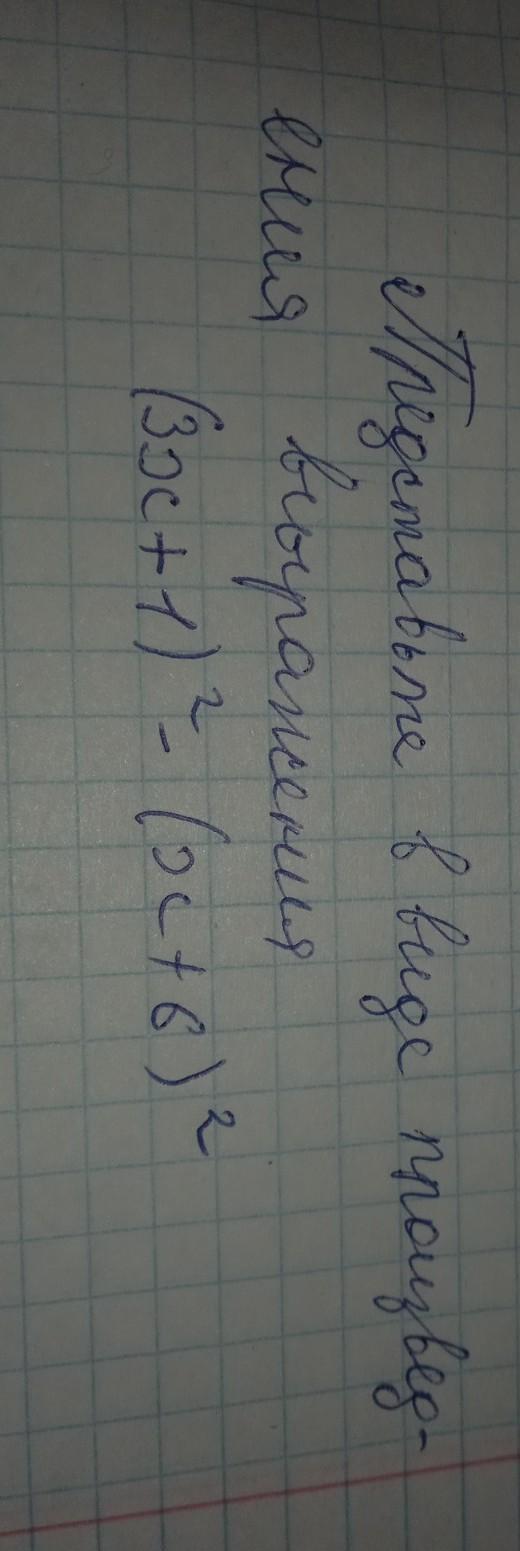 Представьте в виде произвед-
ения выражения
(3x+1)² - (x+6)²